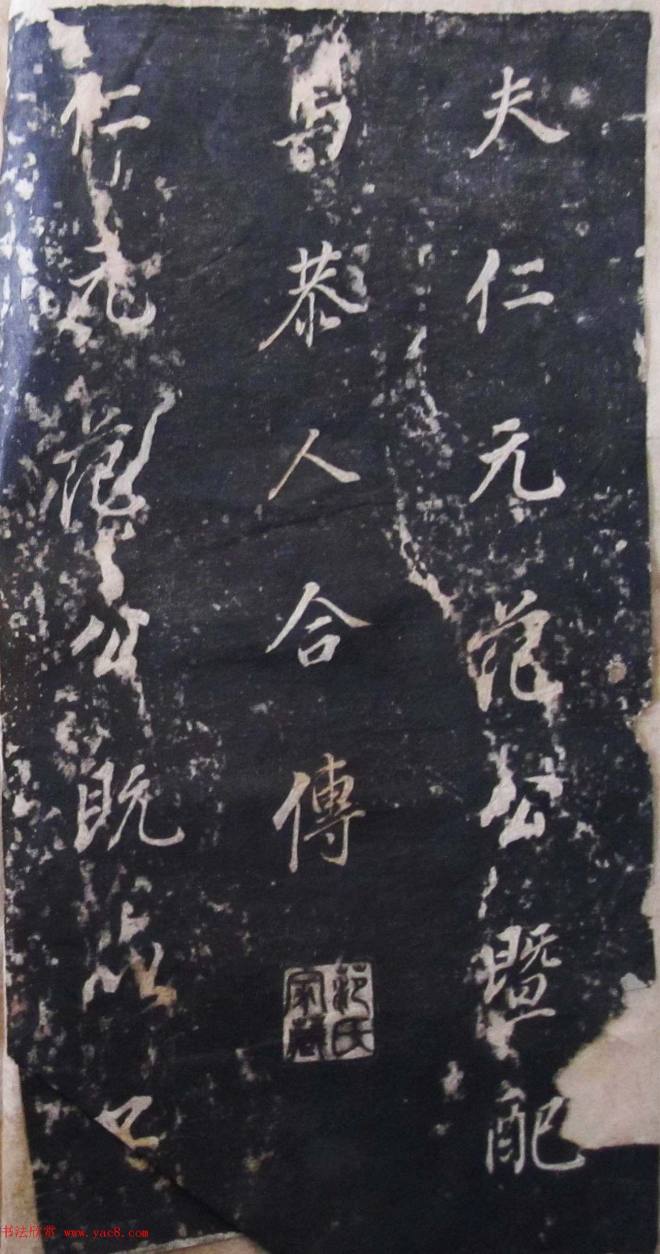 夫仁元范公暨配
馮恭人合傳
范氏家藏
仁元范公既
书法欣赏 www.yac8.com